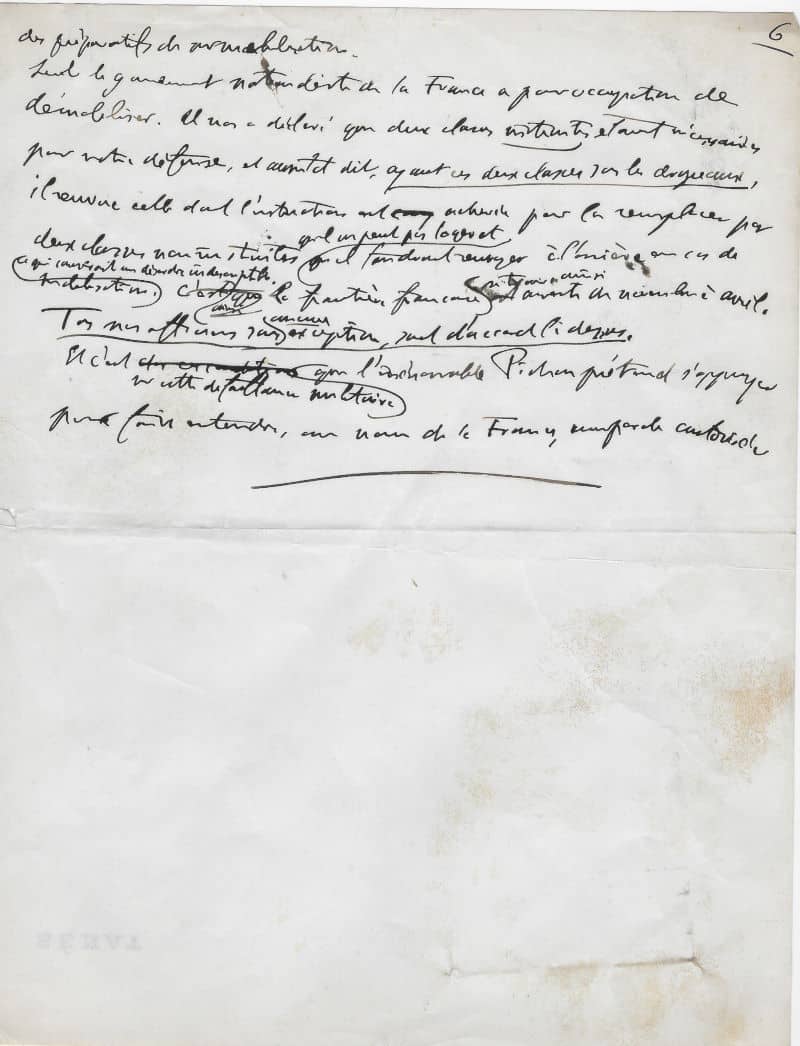 6
des préparatifs de mobilisation.
Seul le gouvernement de la France a pour occupation de
démobiliser. Il nous a déclaré que deux classes instruites étaient nécessaires
pour notre défense, et aussitôt dit, ayant ces deux classes sous les drapeaux,
il renvoie celle dont l'instruction est achevée pour la remplacer par
qu'on ne peut pas loger et
deux classes non instruites qu'il faudrait renvoyer à l'arrière en cas de
ce qui causerait un désordre indescriptible.
mobilisation. C'est la frontière française ouverte de novembre à avril.
Tous nos officiers sans exception, sont d'accord là dessus.
Et c'est que l'inénarrable Pichon prétend s'appuyer
sur cette défaillance militaire
pour faire entendre, au nom de la France, une parole autorisée